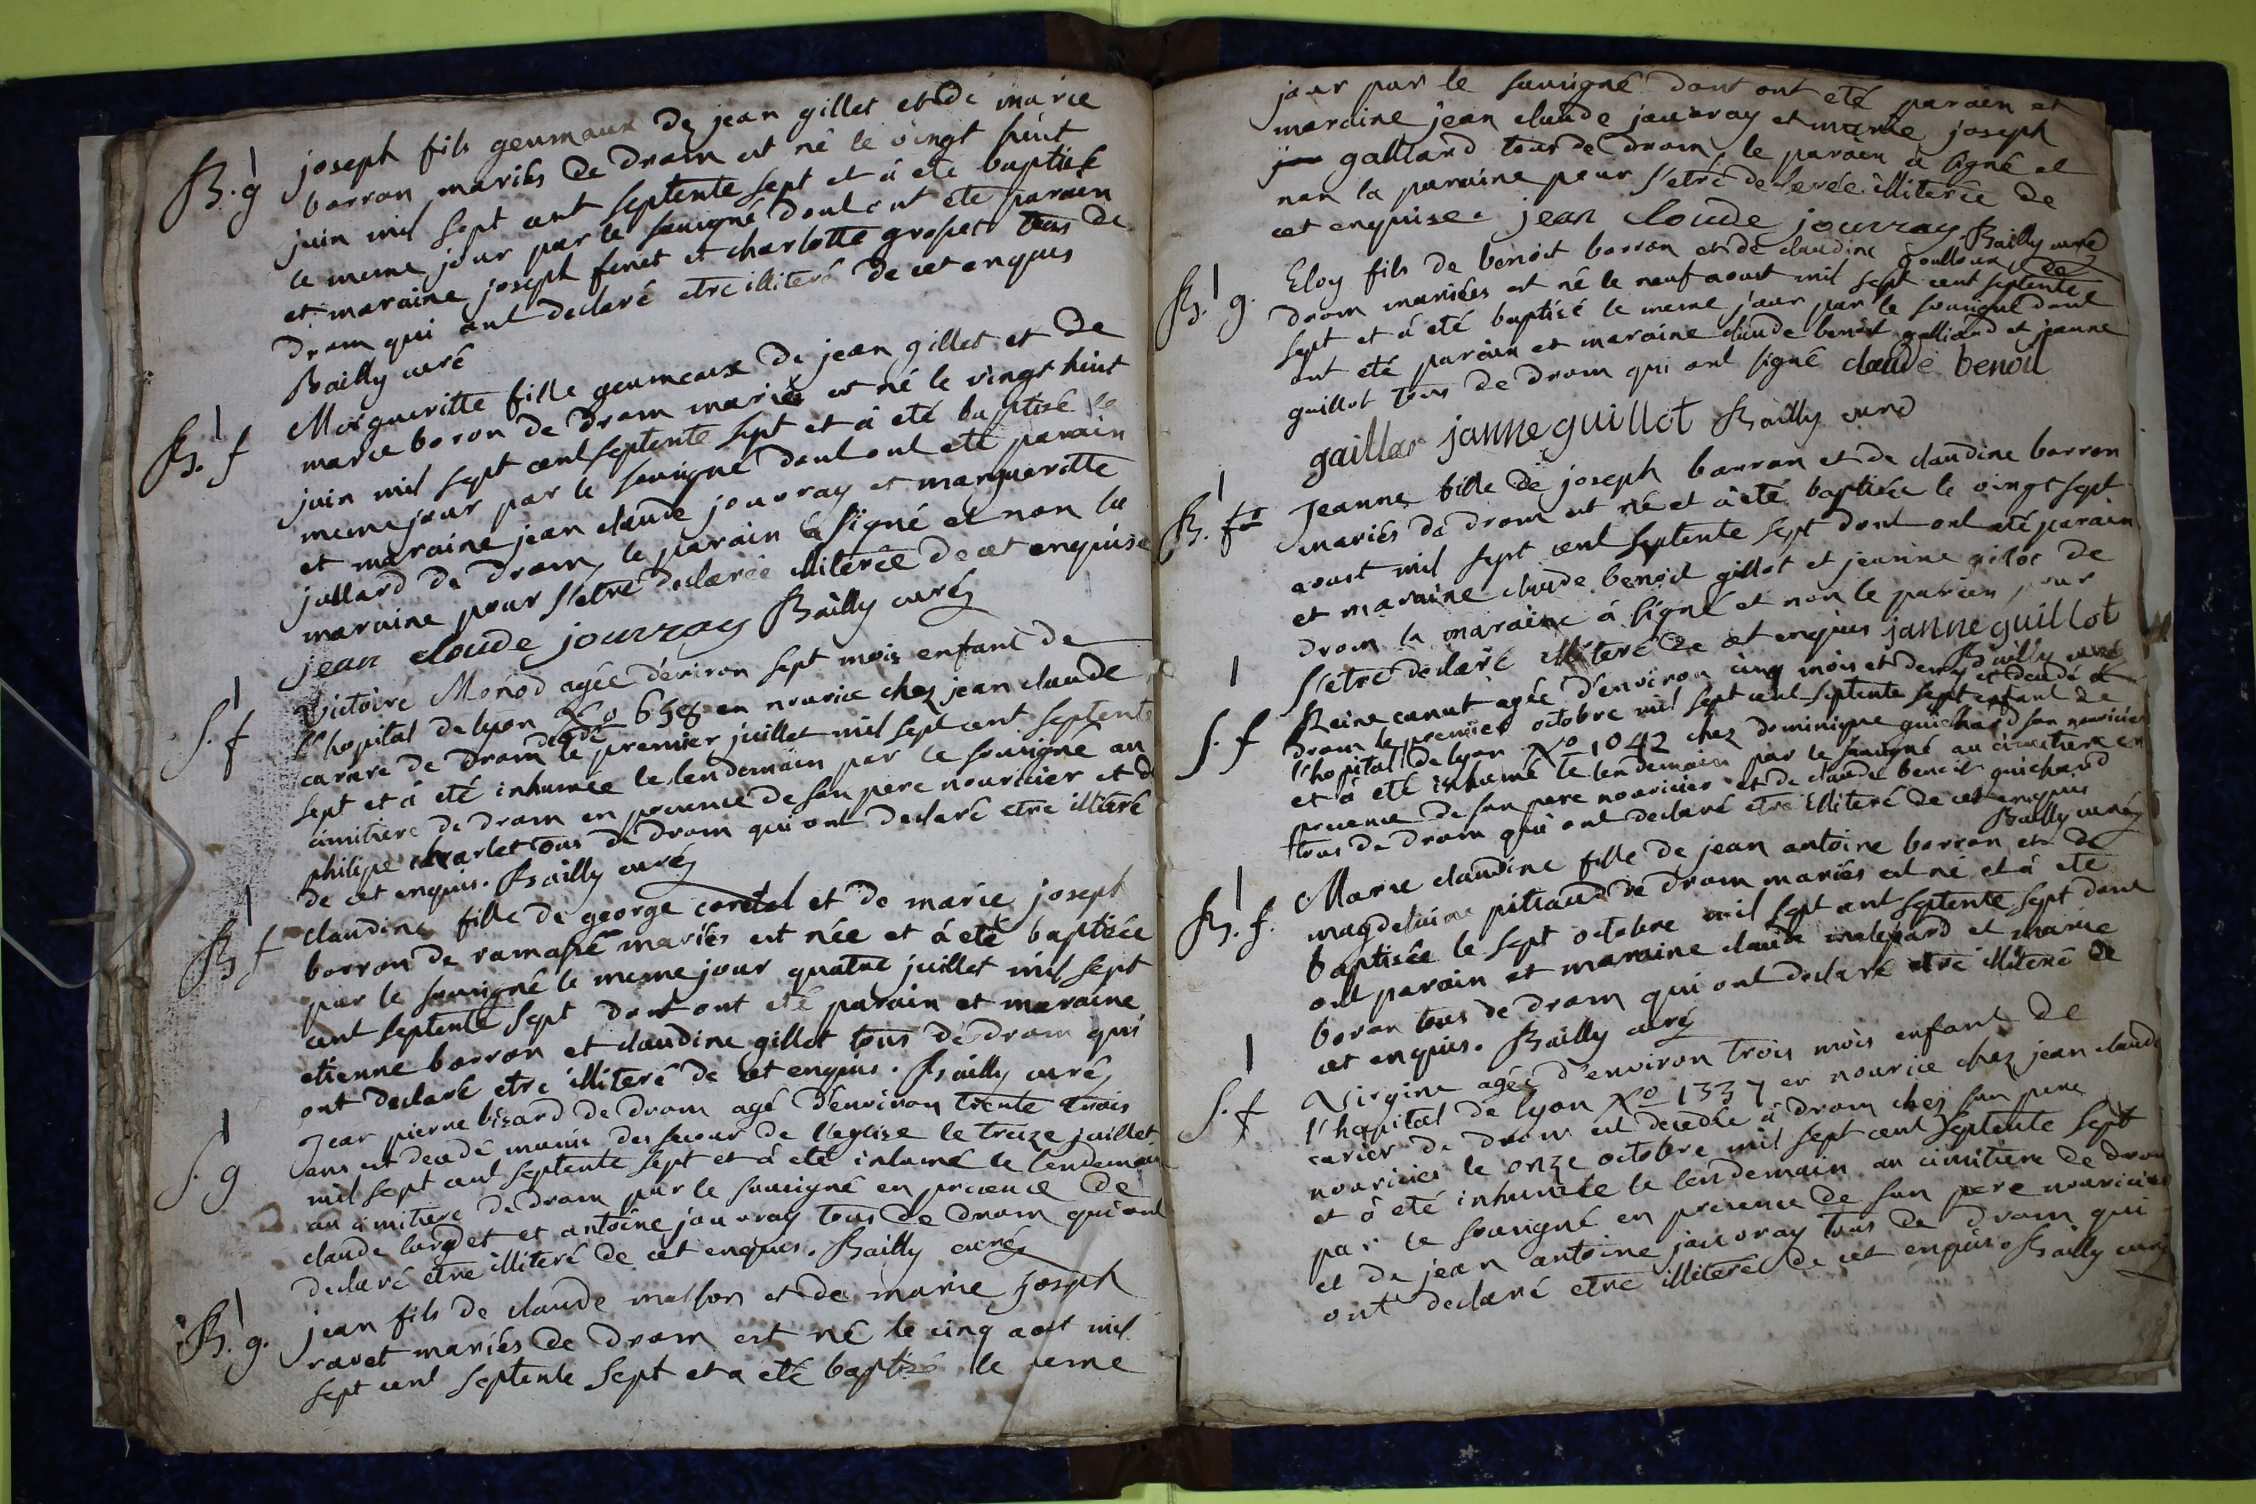 B. g
joseph fils geumaux de jean gillet et de marie
borron mariés de dram est né le vingt huit
juin mil sept cent septente sept et à eté baptisé
le meme jour par le sousigné dont ont eté parain
et maraine joseph et charlotte tous de
dram qui ont declaré etre illiteré de cet enquis
Bailly curé
B. f
Margueritte fille geumeaux de jean gillet et de
marie boron de dram mariés est né le vingt huit
juin mil sept cent septente sept et à eté baptisé le
meme jour par le sousigné dont ont eté parain
et maraine jean claude jouvray et margueritte
jullard de dram, le parain à signé et non la
maraine pour s'etre declarée illiterée de cet enquise
jean cloude jouvray Bailly curé
S. f
Victoire Monod agée d'eniron sept mois enfant de
l'hopital de lyon No 658 en nourice chez jean claude
de dram decedé le premier juillet mil sept cent septente
sept et à eté inhumée le lendemain par le sousigné au
cimitiere de dram en presence de son pere nouricier et de
philipe tous de dram qui ont declaré etre illiteré
de cet enquis. Bailly curé
B f
claudine fille de george et de marie joseph
borron de ramasse mariés est née et à eté baptisée
par le sousigné le meme jour quatre juillet mil sept
cent septente sept dont ont eté parain et maraine
etienne borron et claudine gillet tous de dram qui
ont declaré etre illiteré de cet enquis. Bailly curé
S. g
Jean pierre bisard de dram agé d'environ trente trois
ans est decedé munis des secour de l'eglise le treize juillet
mil sept cent septente sept et à eté inhumé le lendemain
au cimitiere de dram par le sousigné en presence de
claude et antoine jouvray tous de dram qui ont
declaré etre illiteré de cet enquis. Bailly curé
B. g.
jean fils de claude et de marie joseph
ravet mariés de dram est né le cinq aout mil
sept cent septente sept et a eté baptisé le meme
jour par le sousigné dont ont eté parain et
maraine jean claude jauvray et marie joseph
galliard tous de dram, le parain à signé et
non la paraine pour s'etre declarée illiterée de
cet enquise. jean cloude jouvray Bailly curé
B. g.
Eloy fils de benoit borron et de claudine de
dram mariées est né le neuf aoust mil sept cent septente
sept et à eté baptisé le meme jour par le sousigné dont
ont eté parain et maraine claude benoit galliard et jeanne
guillot tous de dram qui ont signé claude benoit
gaillar janne guillot Bailly curé
B. f
Jeanne fille de joseph borron et de claudine borron
mariés de dram est né et à eté baptisée le vingt sept
aoust mil sept cent septente sept dont ont eté parain
et maraine claude benoit gillot et jeanne gilot de
dram la maraine à signé et non le parain pour
s'etre declaré illiteré de cet enquis janne guillot
Bailly curé
S. f
Reine agée d'environ cinq mois et demy est decedé à
dram le premier octobre mil sept cent septente sept enfant de
l'hopital de lyon No 1042 chez dominique guichard son nouricier
et à eté inhumé le lendemain par le sousigné au cimitiere en
presence de son pere nouricier et de claude benoit guichard
tous de dram qui ont declaré etre illiteré de cet enquis
Bailly curé
B. f.
Marie claudine fille de jean antoine borron et de
magdelaine de dram mariés est né et à eté
baptisée le sept octobre mil sept cent septente sept dont
ont parain et maraine claude et marie
boron tous de dram qui ont declaré etre illiteré de
cet enquis. Bailly curé
S. f
Virgine agée d'environ trois mois enfant de
l'hopital de lyon No 1337 en nourice chez jean claude
carier de dram est decedée à dram chez son pere
nouricier le onze octobre mil sept cent septente sept
et à eté inhumée le lendemain au cimitiere de dram
par le sousigné en presence de son pere nouricier
et de jean antoine jauvray tous de dram qui
ont declaré etre illiteré de cet enquis. Bailly curé